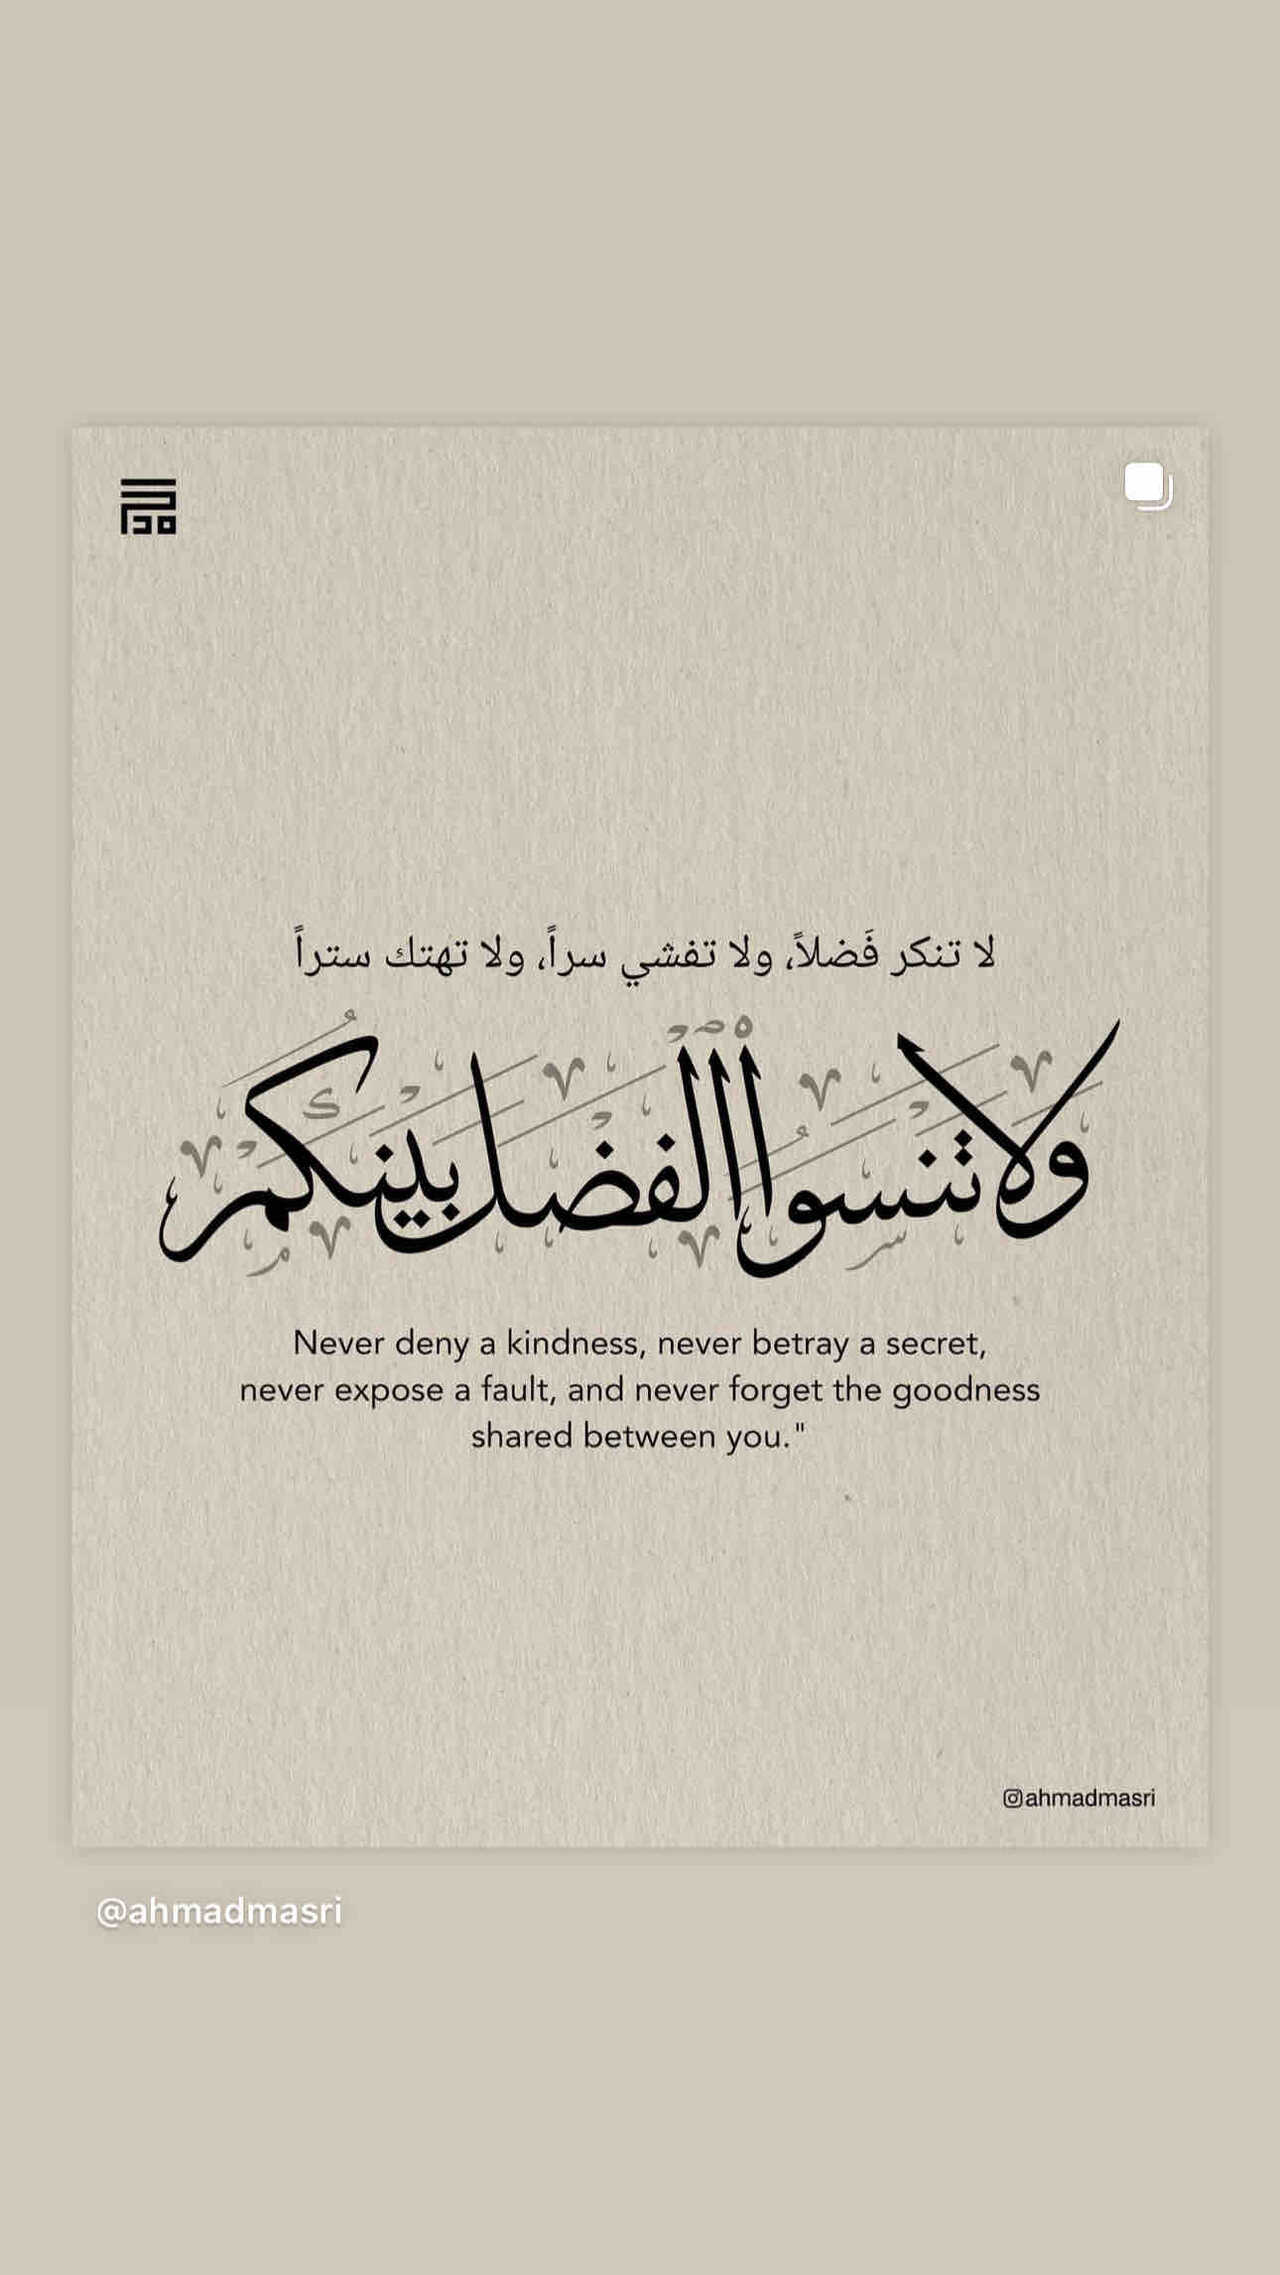 لا تنكر فَضلاً، ولا تفشي سراً، ولا تهتك ستراً
ولا تنسوا الفضل بينكم
Never deny a kindness, never betray a secret,
never expose a fault, and never forget the goodness
shared between you."
@ahmadmasri
@ahmadmasri